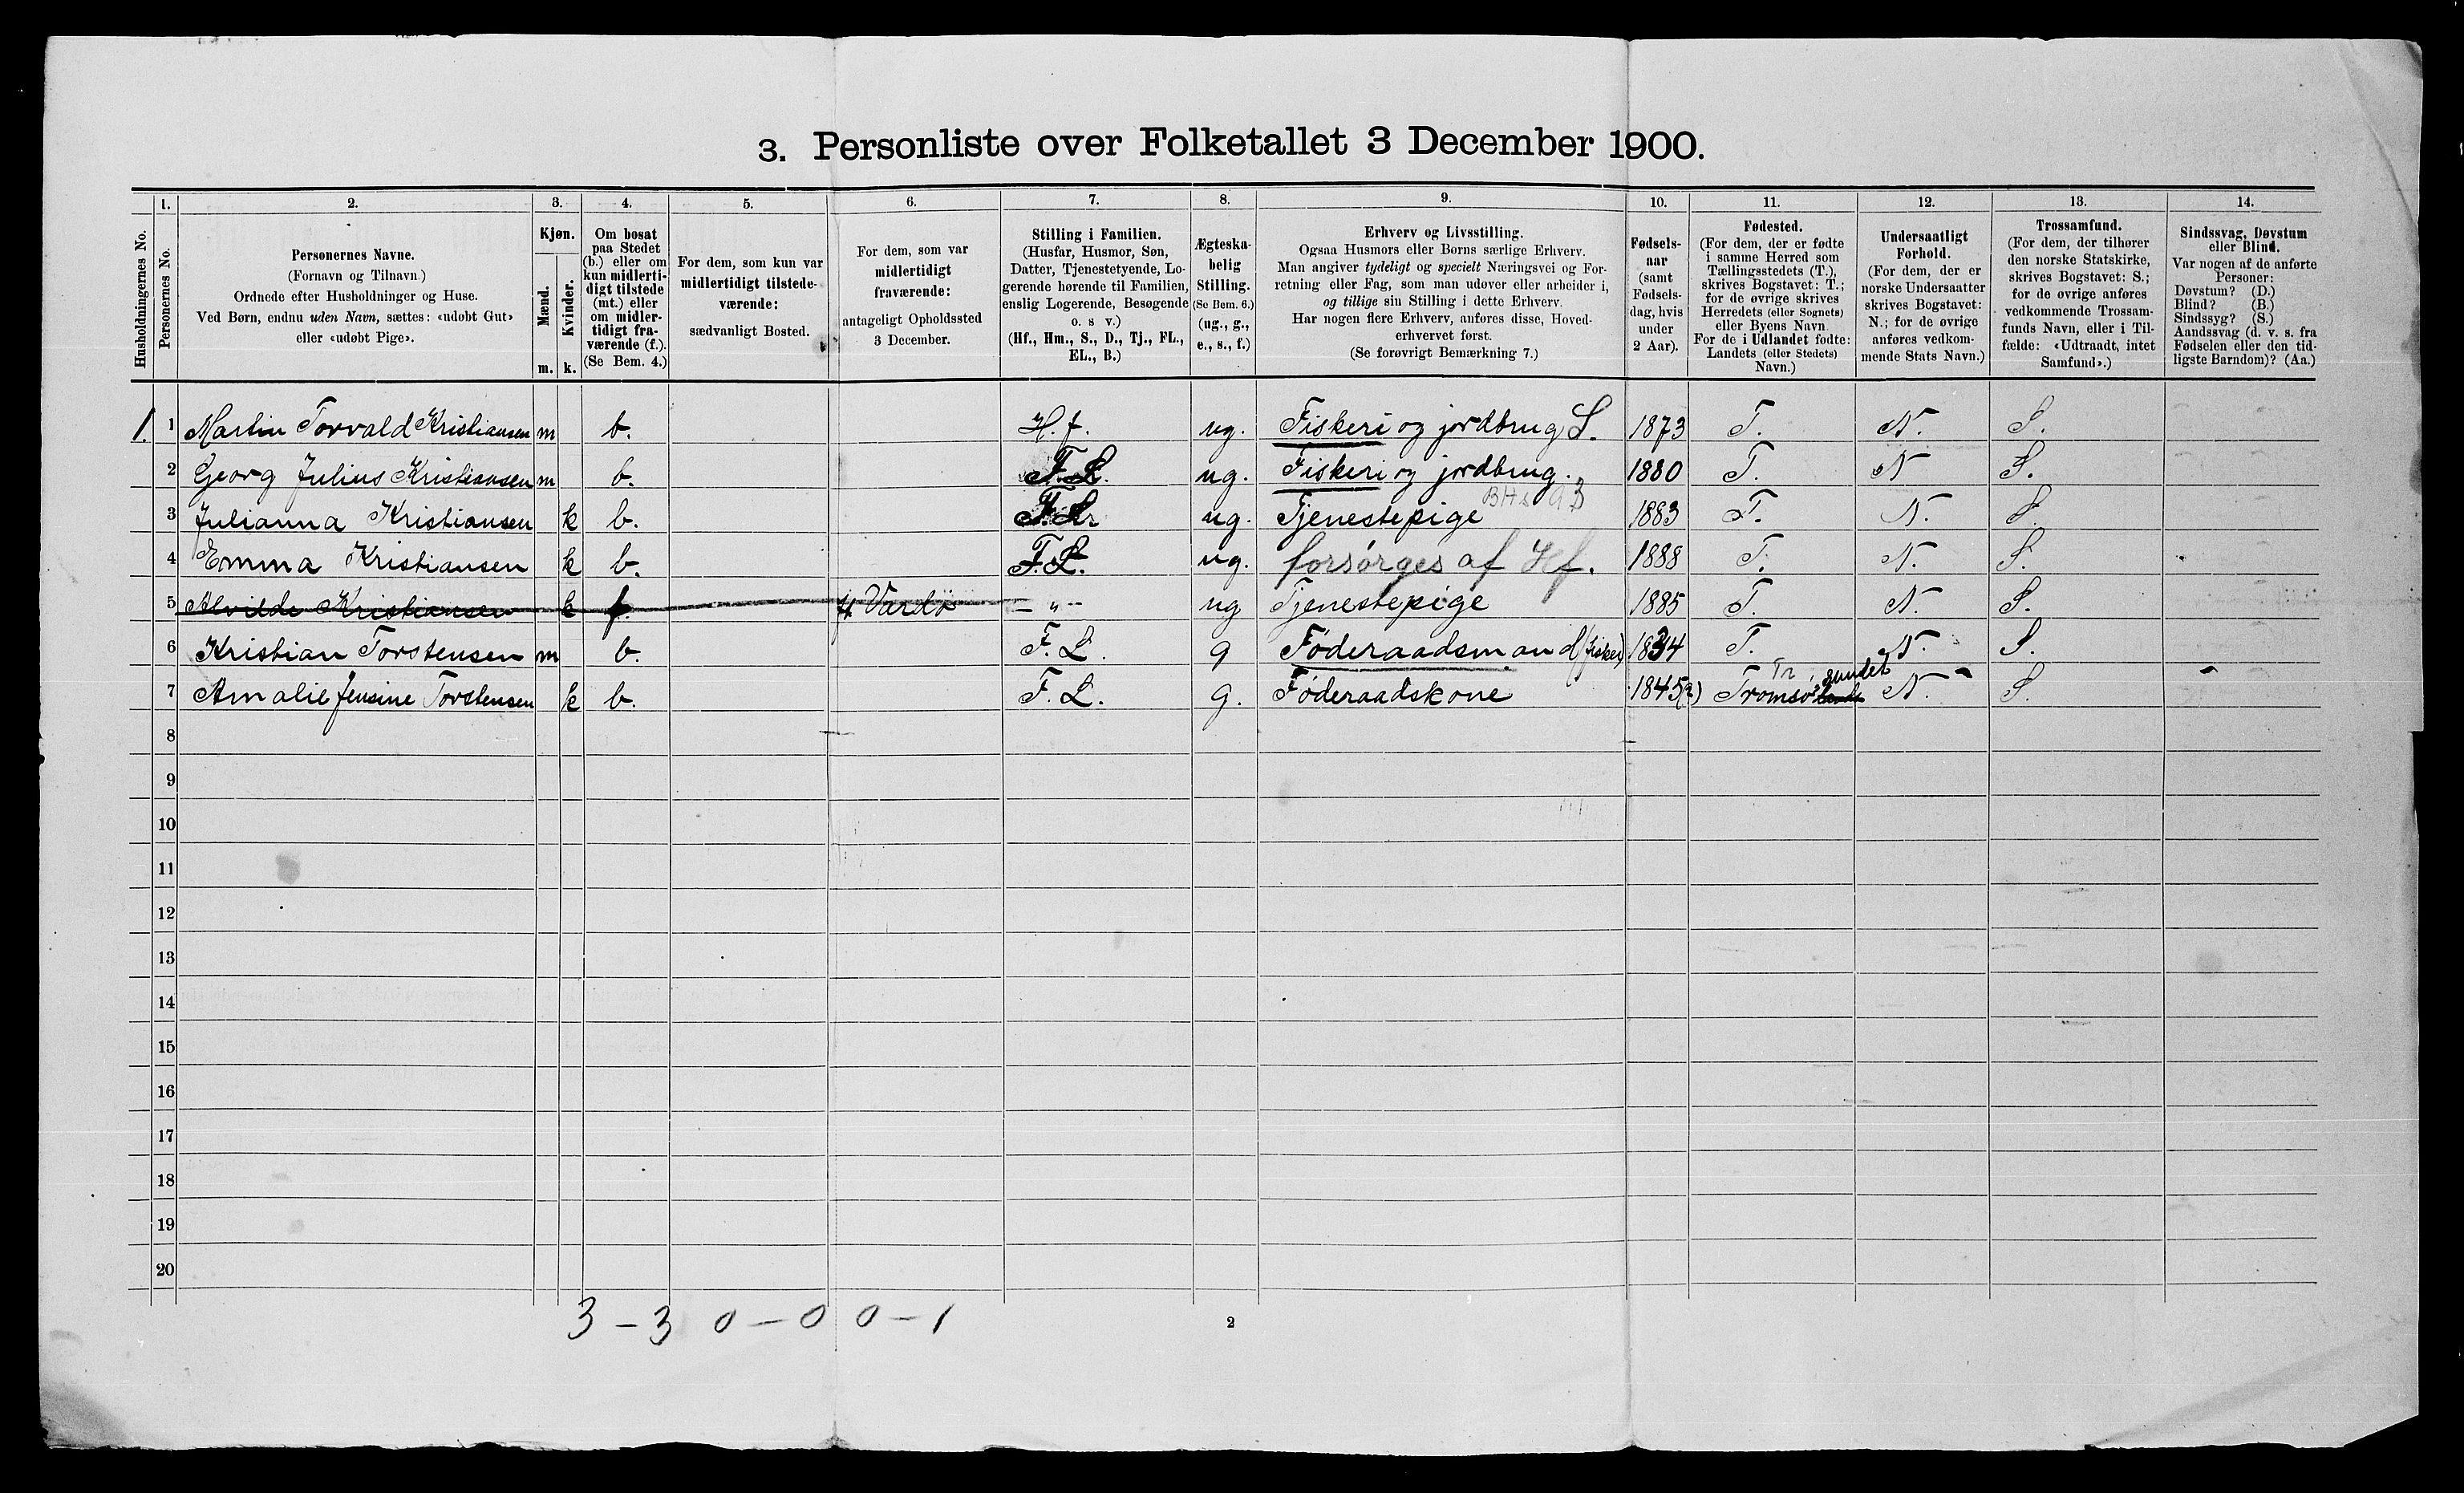 3. Personliste over Folketallet 3 December 1900.
Husholdningernes No.
1.
Personernes No.
2.
Personernes Navne.
(Fornavn og Tilnavn.)
Ordnede efter Husholdninger og Huse.
Ved Børn, endnu uden Navn, sættes: «udøbt Gut»
eller «udøbt Pige».
3.
Kjøn.
Mænd.
Kvinder.
m. k.
4.
Om bosat
paa Stedet
(b.) eller om
kun midlerti-
digt tilstede
(mt.) eller
om midler-
tidigt fra-
værende (f.).
(Se Bem. 4.)
5.
For dem, som kun var
midlertidigt tilstede-
værende:
sædvanligt Bosted.
6.
For dem, som var
midlertidigt
fraværende:
antageligt Opholdssted
3 December.
7.
Stilling i Familien.
(Husfar, Husmor, Søn,
Datter, Tjenestetyende, Lo-
gerende hørende til Familien,
enslig Logerende, Besøgende
o. s v.)
(Hf., Hm., S., D., Tj., FL.,
EL., B.)
8.
Ægteska-
belig
Stilling.
(Se Bem. 6.)
(ug., g.,
e., s., f.)
9.
Erhverv og Livsstilling.
Ogsaa Husmors eller Børns særlige Erhverv.
Man angiver tydeligt og specielt Næringsvei og For-
retning eller Fag, som man udøver eller arbeider i,
og tillige sin Stilling i dette Erhverv.
Har nogen flere Erhverv, anføres disse, Hoved-
erhvervet først.
(Se forøvrigt Bemærkning 7.)
10.
Fødsels-
aar
(samt
Fødsels-
dag, hvis
under
2 Aar).
11.
Fødested.
(For dem, der er fødte
i samme Herred som
Tællingsstedets (T.),
skrives Bogstavet: T.;
for de øvrige skrives
Herredets (eller Sognets)
eller Byens Navn.
For de i Udlandet fødte:
Landets (eller Stedets)
Navn.)
12.
Undersaatligt
Forhold.
(For dem, der er
norske Undersaatter
skrives Bogstavet:
N.; for de øvrige
anføres vedkom-
mende Stats Navn.)
13.
Trossamfund.
(For dem, der tilhører
den norske Statskirke,
skrives Bogstavet: S.;
for de øvrige anføres
vedkommende Trossam-
funds Navn, eller i Til-
fælde: «Udtraadt, intet
Samfund».)
14.
Sindssvag, Døvstum
eller Blind.
Var nogen af de anførte
Personer:
Døvstum? (D.)
Blind? (B.)
Sindssyg? (S.)
Aandssvag (d. v. s. fra
Fødselen eller den tid-
ligste Barndom)? (Aa.)
1. 1 Martin Torvald Kristiansen m b. H.f. ug. Fiskeri og jordbrug S. 1873 T. N. S.
2 Georg Julius Kristiansen m b. F.L. ug. Fiskeri og jordbrug. 1880 T. N S.
3 Julianna Kristiansen k b. F.L. ug. Tjenestepige 1883 T. N. S.
4 Emma Kristiansen k b. F.L. ug. forsørges af Hf. 1888 T. N. S.
5 Alvilde Kristiansen k f. Vardø – " – ug Tjenestepige 1885 T. N. S.
6 Kristian Torstensen m b. F. L. g Føderaadsmand (fisker) 1834 T. N. S.
Tr. sundet
7 Amalie Jensine Torstensen k b. F. L. g. Føderaadskone 1845(?) Tromsø N. S.
8
9
10
11
12
13
14
15
16
17
18
19
20
3 – 3 0 – 0 0 – 1
2